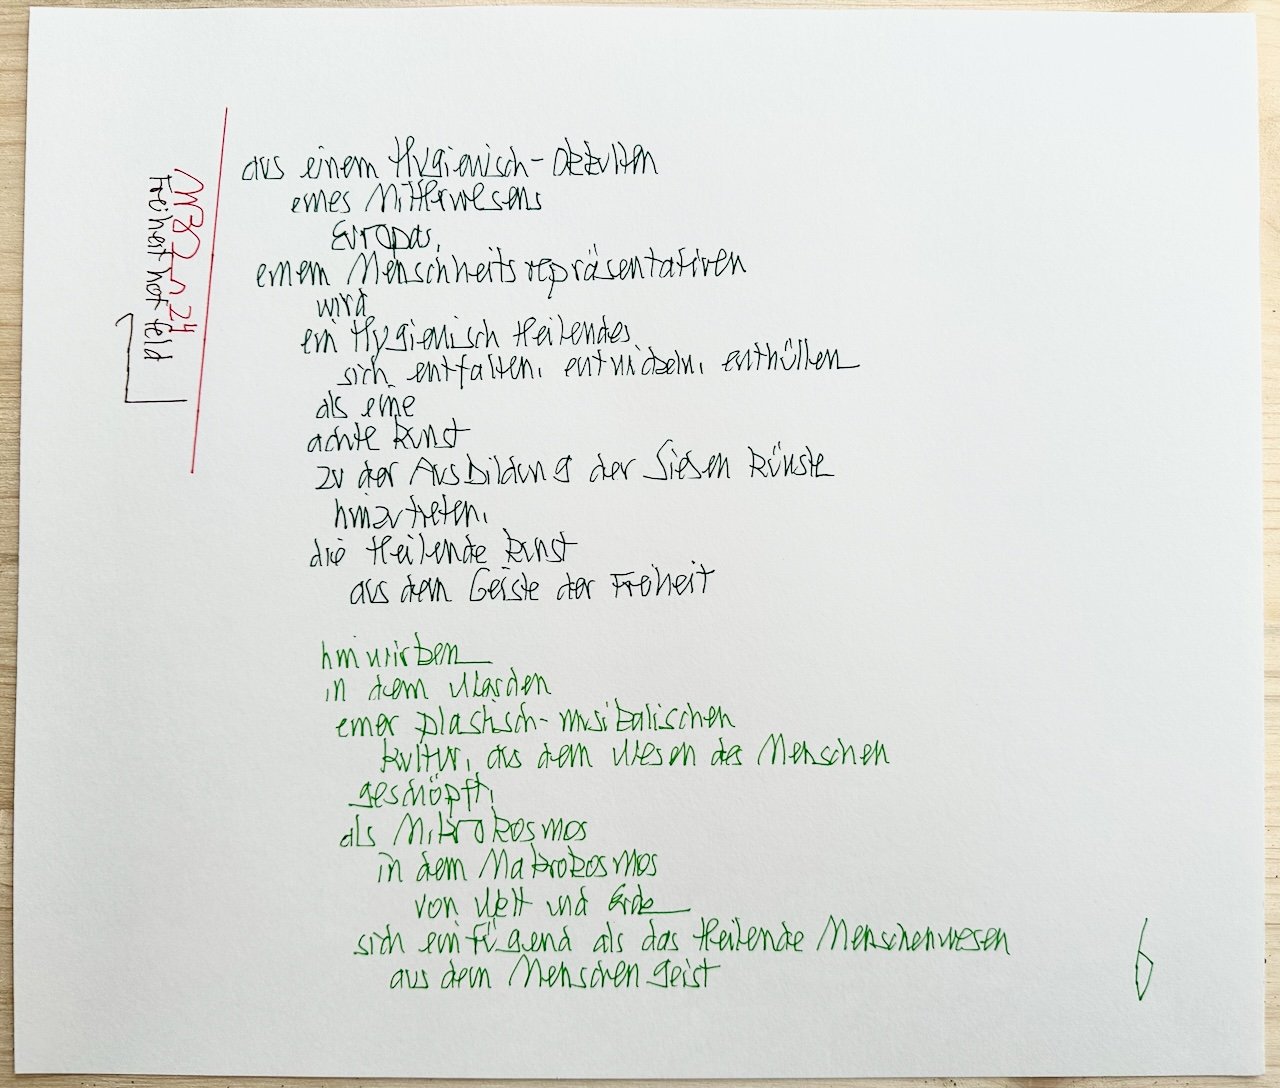 aus einem Hygienisch-Okkulten
eines Mittlerwesens
Europas,
einem Menschheitsrepräsentativen
wird
ein Hygienisch Heilendes
sich entfalten, entwickeln, enthüllen
als eine
achte Kunst
zu der Ausbildung der Sieben Künste
hinzutreten,
die Heilende Kunst
aus dem Geiste der Freiheit
hinwirken
in dem Werden
einer plastisch-musikalischen
Kultur, aus dem Wesen des Menschen
geschöpft,
als Mikrokosmos
in dem Makrokosmos
von Welt und Erde
sich einfügend als das Heilende Menschenwesen
aus dem Menschengeist
24
Freiheit hof feld
6